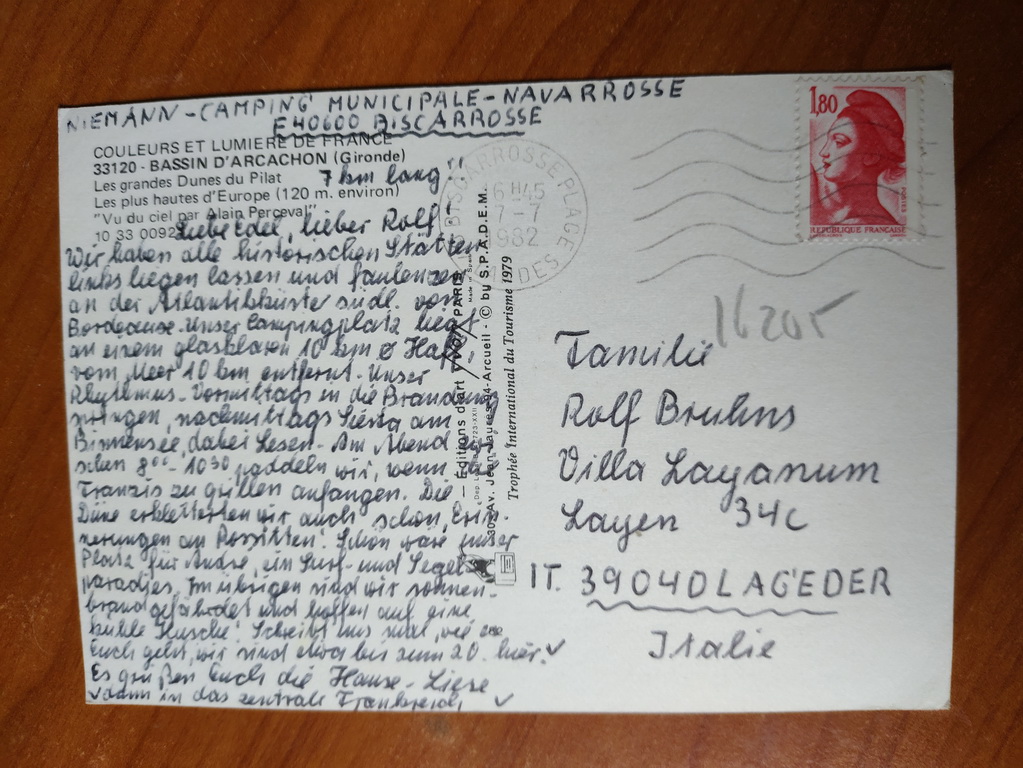 NIEMANN-CAMPING MUNICIPALE-NAVARROSSE
F40600 BISCARROSSE
COULEURS ET LUMIERE DE FRANCE
33120 - BASSIN D'ARCACHON (Gironde)
Les grandes Dunes du Pilat
7 km lang!!
Les plus hautes d'Europe (120 m. environ)
"Vu du ciel par Alain Perceval"
10 33 0092
Liebe Edel, lieber Rolf!
Wir haben alle historischen Stätten
links liegen lassen und faulenzen
an der Atlantikküste südl. von
Bordeaux. Unser Campingplatz liegt
an einem glasklaren 10 km ø Haff
vom Meer 10 km entfernt. Unser
Rhythmus. Vormittags in die Brandung
springen, nachmittags Siesta am
Binnensee, dabei Lesen. Am Abend zwi-
schen 8⁰⁰-10³⁰ paddeln wir, wenn die
Franzis zu grillen anfangen. Die
Düne erkletterten wir auch schon, Erin-
nerungen an Rossitten! Schön wäre unser
Platz für André, ein Surf- und Segel-
paradies. Im übrigen sind wir sonnen-
brandgefährdet und hoffen auf eine
kühle Husche! Schreibt uns mal, wie es
Euch geht, wir sind etwa bis zum 20. hier.✓
Es grüßen Euch die Hanse-Liese
✓dann in das zentrale Frankreich ✓
Editions d'art YVON PARIS
Made in
30, Av. Jean-Jaurès 94-Arcueil - © by S.P.A.D.E.M.
Trophée International du Tourisme 1979
BISCARROSSE PLAGE
16 H 45
7-7
1982
LANDES
1,80
POSTES
REPUBLIQUE FRANÇAISE
16205
Familie
Rolf Bruhns
Villa Layanum
Layen 34c
IT. 39040 LAGEDER
Italie